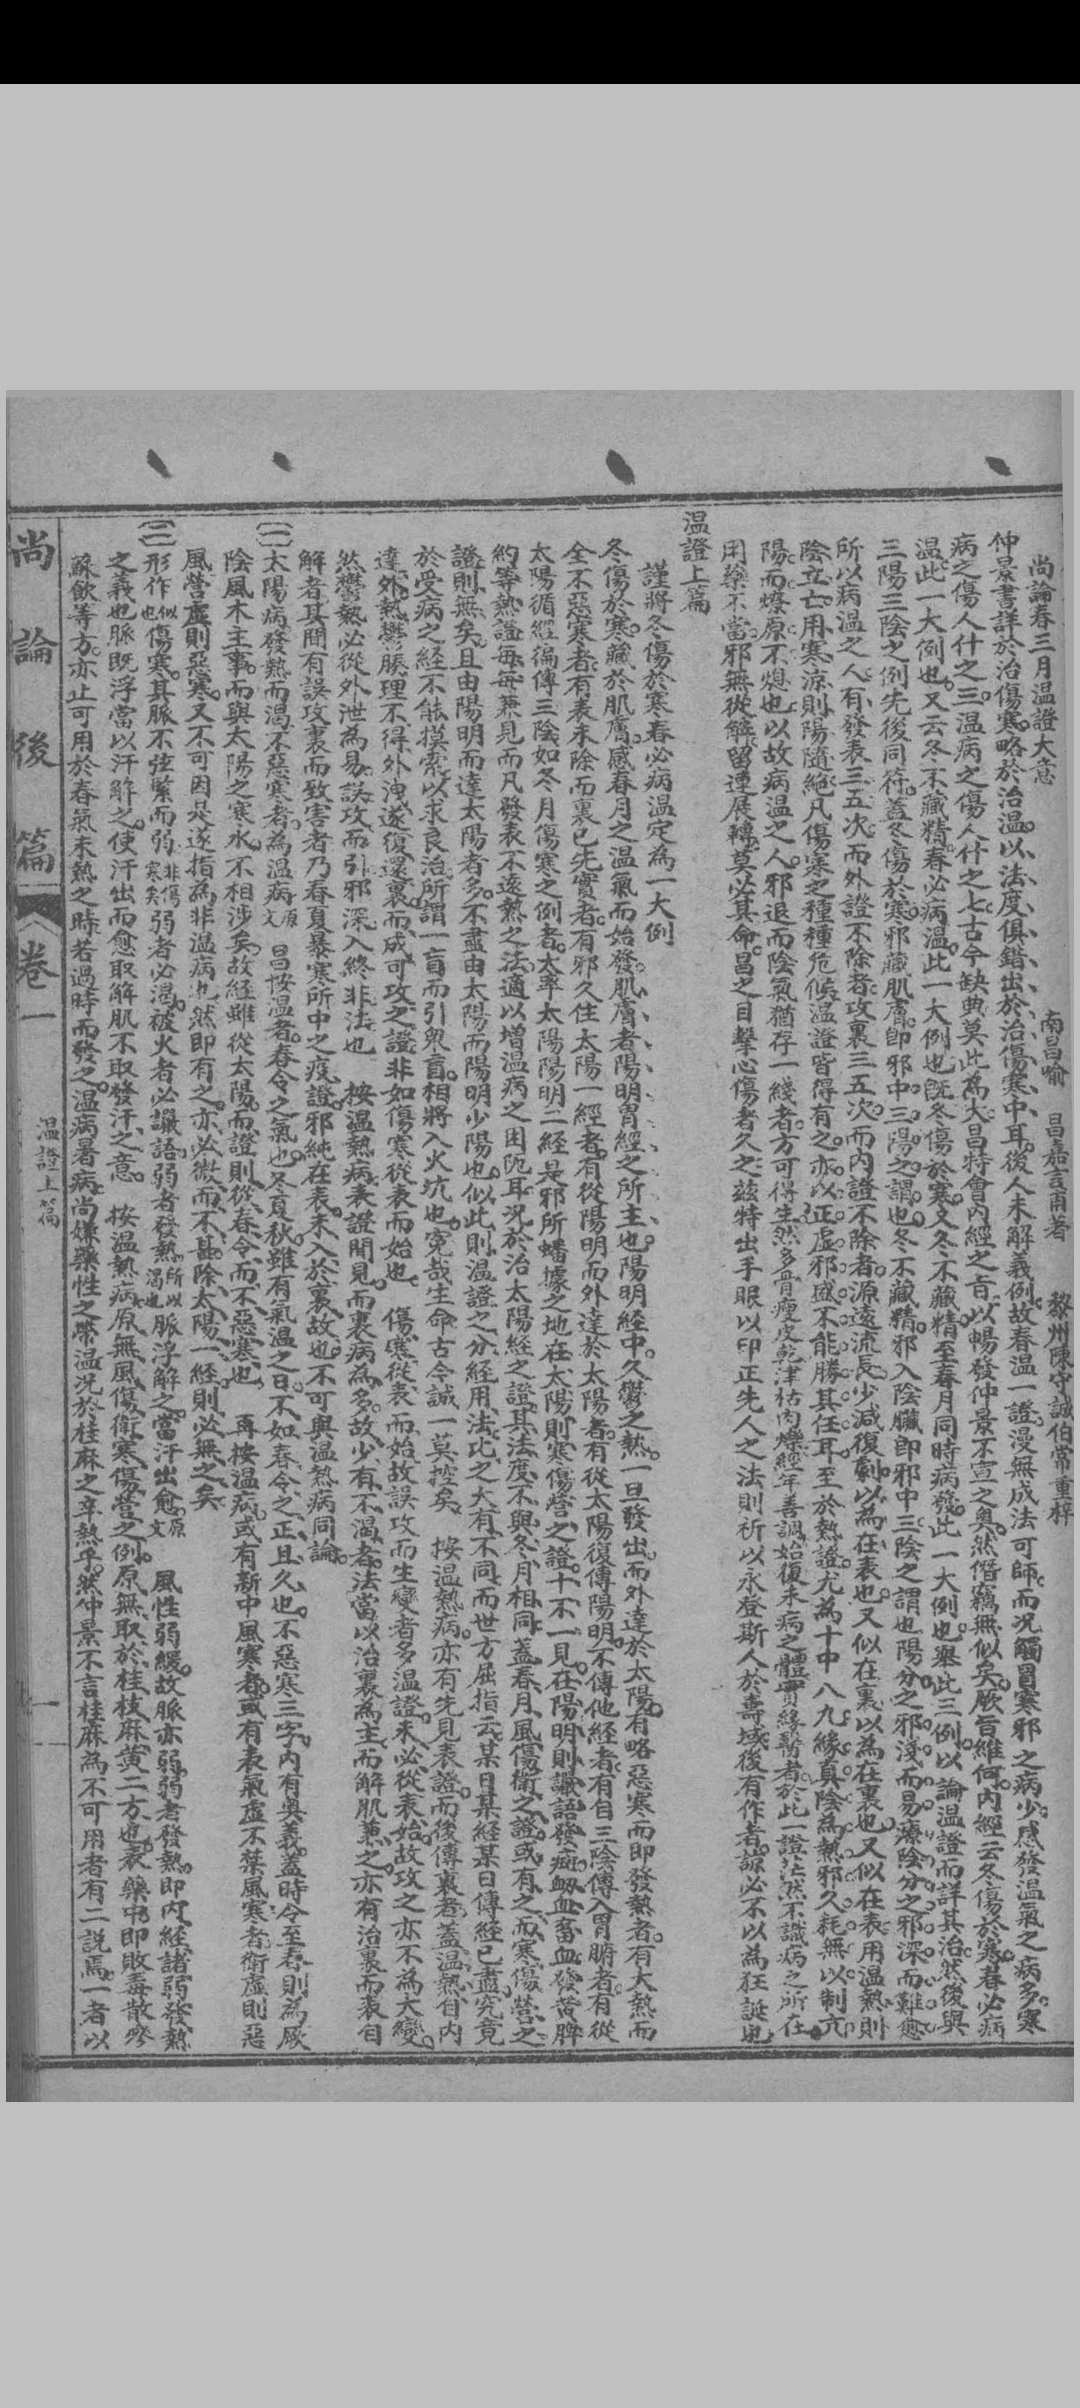 尚論春三月温證大意
南昌喻 昌嘉言甫著 黎州陳守誠伯常重梓
仲景書詳於治傷寒略於治温以法度俱錯出於治傷寒中耳後人未解義例故春温一證漫無成法可師而况觸冒寒邪之病少感發温氣之病多寒
病之傷人什之三温病之傷人什之七古今缺典莫此為大昌特會内經之旨以暢發仲景不宣之奥然僭竊無似矣厥旨維何内經云冬傷於寒春必病
温此一大例也又云冬不藏精春必病温此一大例也既冬傷於寒又冬不藏精至春月同時病發此一大例也舉此三例以論温證而詳其治然後與
三陽三陰之例先後同符蓋冬傷於寒邪藏肌膚卽邪中三陽之謂也冬不藏精邪入陰臟卽邪中三陰之謂也陽分之邪淺而易療陰分之邪深而難愈
所以病温之人有發表三五次而外證不除者攻裏三五次而内證不除者源遠流長少減復劇以為在表也又似在裏以為在裏也又似在表用温熱則
陰立亡用寒涼則陽隨絶凡傷寒之種種危候温證皆得有之亦以正虛邪盛不能勝其任耳至於熱證尤為十中八九緣真陰為熱邪久耗無以制亢
陽而燎原不熄也以故病温之人邪退而陰氣猶存一綫者方可得生然多骨瘦皮乾津枯肉爍經年善調始復未病之體實緣醫者於此一證茫然不識病之所在
用藥不當邪無從解留連展轉莫必其命昌之目擊心傷者久之兹特出手眼以印正先人之法則祈以永登斯人於壽域後有作者諒必不以為狂誕也
温證上篇
謹將冬傷於寒春必病温定為一大例
冬傷於寒藏於肌膚感春月之温氣而始發肌膚者陽明胃經之所主也陽明經中久鬱之熱一旦發出而外達於太陽有略惡寒而即發熱者有大熱而
全不惡寒者有表未除而裏已先實者有邪久住太陽一經者有從陽明而外達於太陽者有從太陽復傳陽明不傳他經者有自三陰傳入胃腑者有從
太陽循經徧傳三陰如冬月傷寒之例者大率太陽陽明二經是邪所蟠據之地在太陽則寒傷營之證十不一見在陽明則讝語發斑衂血畜血發黄脾
約等熱證毎毎兼見而凡發表不遠熱之法適以增温病之困阨耳况於治太陽經之證其法度不與冬月相同蓋春月風傷衛之證或有之而寒傷營之
證則無矣且由陽明而達太陽者多不盡由太陽而陽明少陽也似此則温證之分經用法比之大有不同而世方屈指云某日某經某日傳經已盡究竟
於受病之經不能摸索以求良治所謂一盲而引衆盲相將入火坑也寃哉生命古今誠一莫控矣 按温熱病亦有先見表證而後傳裏者蓋温熱自内
達外熱鬱腠理不得外洩遂復還裏而成可攻之證非如傷寒從表而始也 傷寒從表而始故誤攻而生變者多温證未必從表始故攻之亦不為大變
然鬱熱必從外泄為易誤攻而引邪深入終非法也 按温熱病表證間見而裏病為多故少有不渴者法當以治裏為主而解肌兼之亦有治裏而表自
解者其間有誤攻裏而致害者乃春夏暴寒所中之疫證邪純在表未入於裏故也不可與温熱病同論
(一)太陽病發熱而渴不惡寒者為温病原文 昌按温者春令之氣也冬夏秋雖有氣温之日不如春令之正且久也不惡寒三字内有奥義蓋時令至春則為厥
陰風木主事而與太陽之寒水不相涉矣故經雖從太陽而證則從春令而不惡寒也 再按温病或有新中風寒者或有表氣虛不禁風寒者衛虛則惡
風營虛則惡寒又不可因是遂指為非温病也然即有之亦必微而不甚除太陽一經則必無之矣
(二)形作似也傷寒其脈不弦緊而弱非傷寒矣弱者必渴被火者必讝語弱者發熱所以渴也脈浮解之當汗出愈原文 風性弱緩故脈亦弱弱者發熱即内經諸弱發熱
之義也脈既浮當以汗解之使汗出而愈取解肌不取發汗之意 按温熱病原無風傷衛寒傷營之例原無取於桂枝麻黄二方也表藥中即敗毒散參
蘇飲等方亦止可用於春氣未熱之時若過時而發之温病暑病尚嫌藥性之帶温况於桂麻之辛熱乎然仲景不言桂麻為不可用者有二説焉一者以
尚論後篇 卷一 温證上篇 一